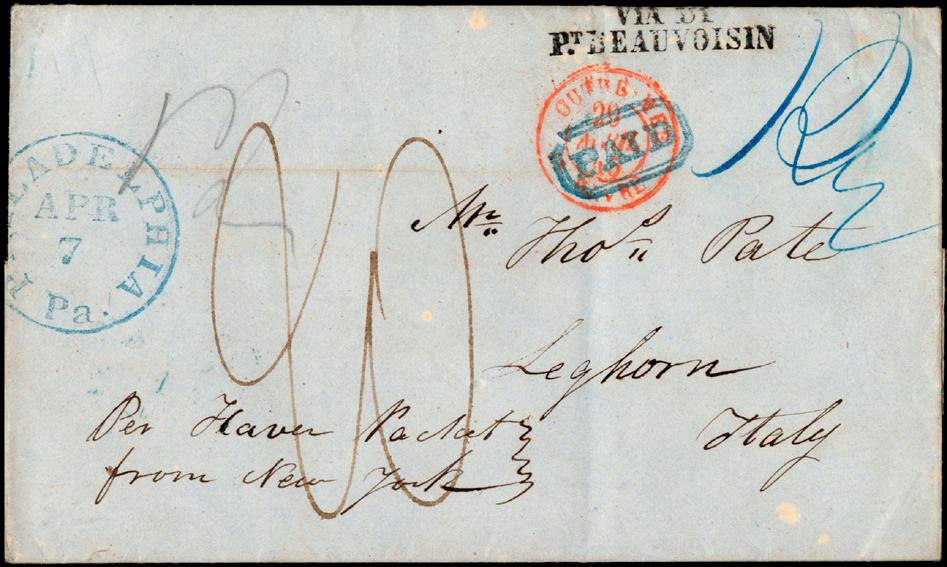 VIA DI
P.T BEAUVOISIN
OUTRE-MER
20
PAID
HAVRE
PHILADELPHIA
APR
7
Pa.
Mr.
Thos. Pate
Leghorn
Italy
Per Haver Packet
from New York